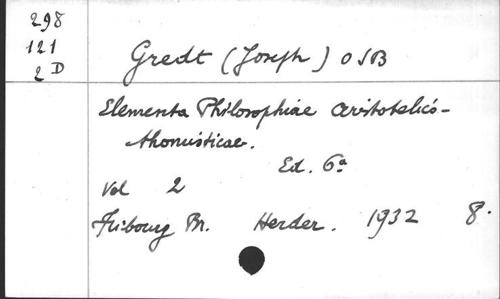 298
121
2 D
Gredt (Joseph) OSB
Elementa Philosophiae Aristotelico-
thomisticae.
Ed. 6a
Vol 2
Fribourg Br. Herder. 1932 8.